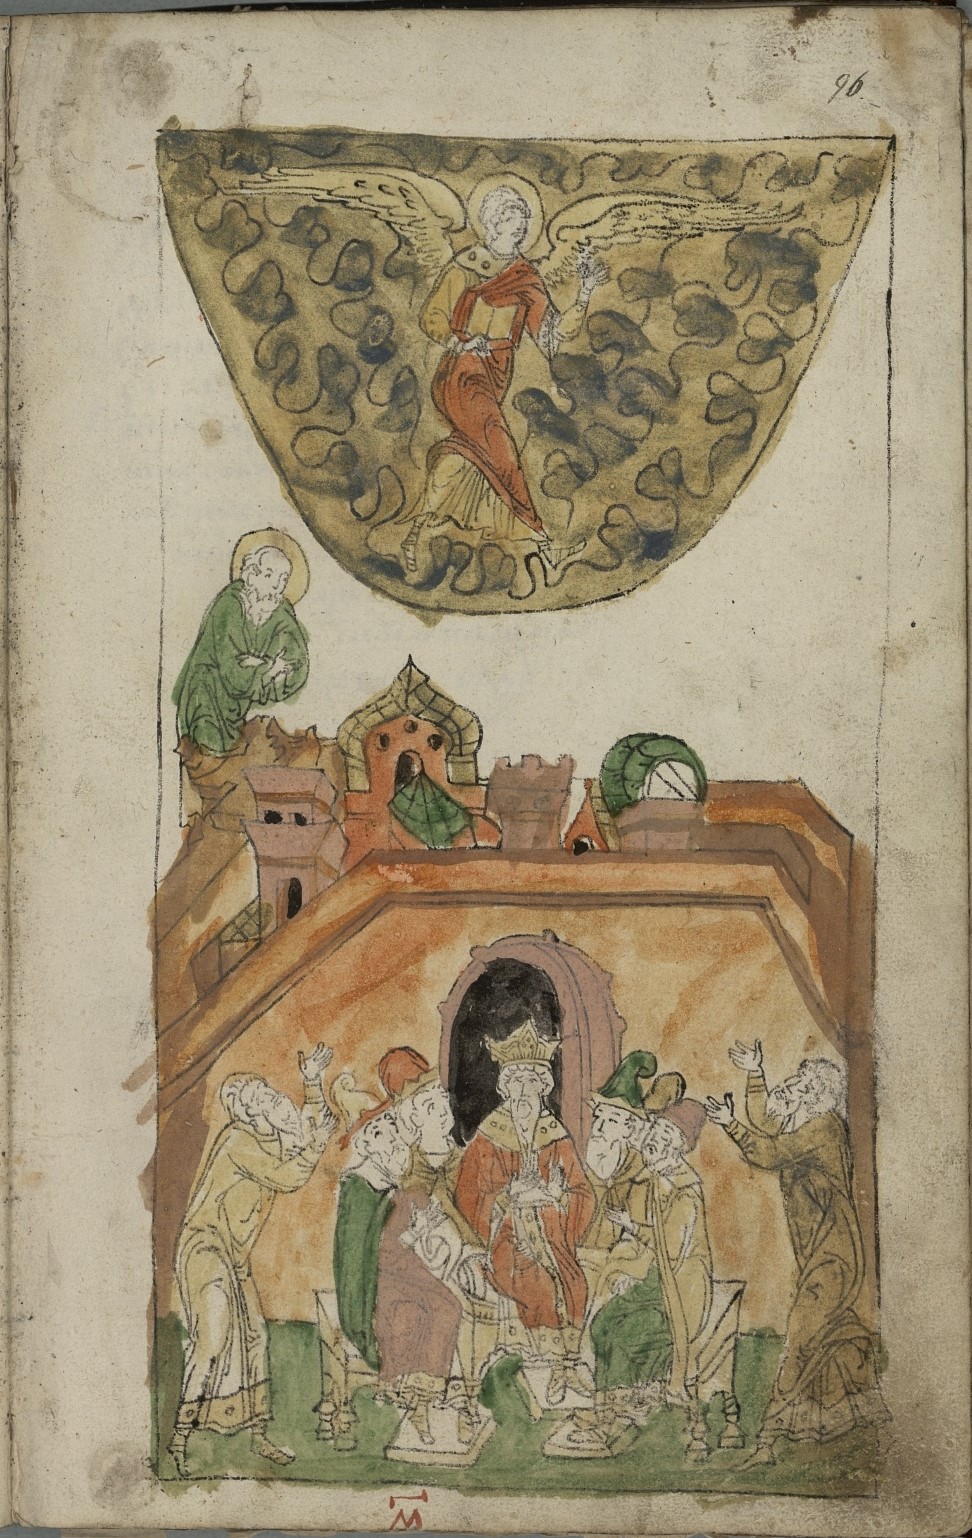 96
м҃